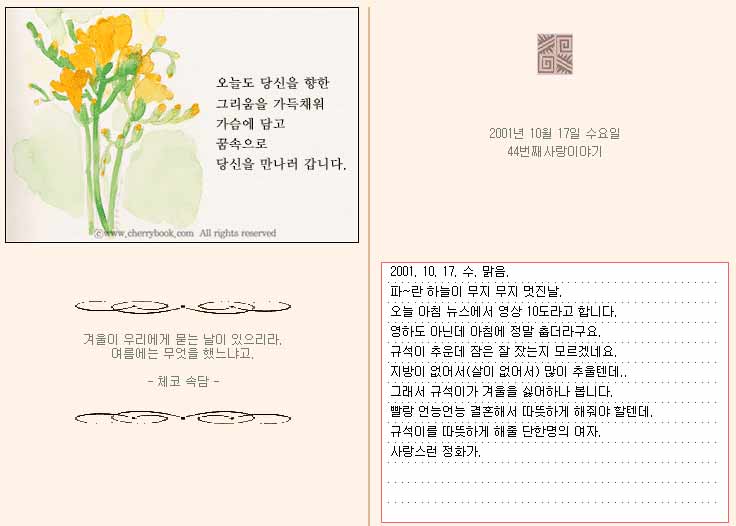 오늘도 당신을 향한
그리움을 가득채워
가슴에 담고
꿈속으로
당신을 만나러 갑니다.
ⓒwww.cherrybook.com All rights reserved
겨울이 우리에게 묻는 날이 있으리라,
여름에는 무엇을 했느냐고,
- 체코 속담 -
2001년 10월 17일 수요일
44번째사랑이야기
2001. 10. 17. 수. 맑음.
파~란 하늘이 무지 무지 멋진날.
오늘 아침 뉴스에서 영상 10도라고 합니다.
영하도 아닌데 아침에 정말 춥더라구요.
규석이 추운데 잠은 잘 잤는지 모르겠네요.
지방이 없어서(살이 없어서) 많이 추울텐데..
그래서 규석이가 겨울을 싫어하나 봅니다.
빨랑 언능언능 결혼해서 따뜻하게 해줘야 할텐데.
규석이를 따뜻하게 해줄 단한명의 여자.
사랑스런 정화가.